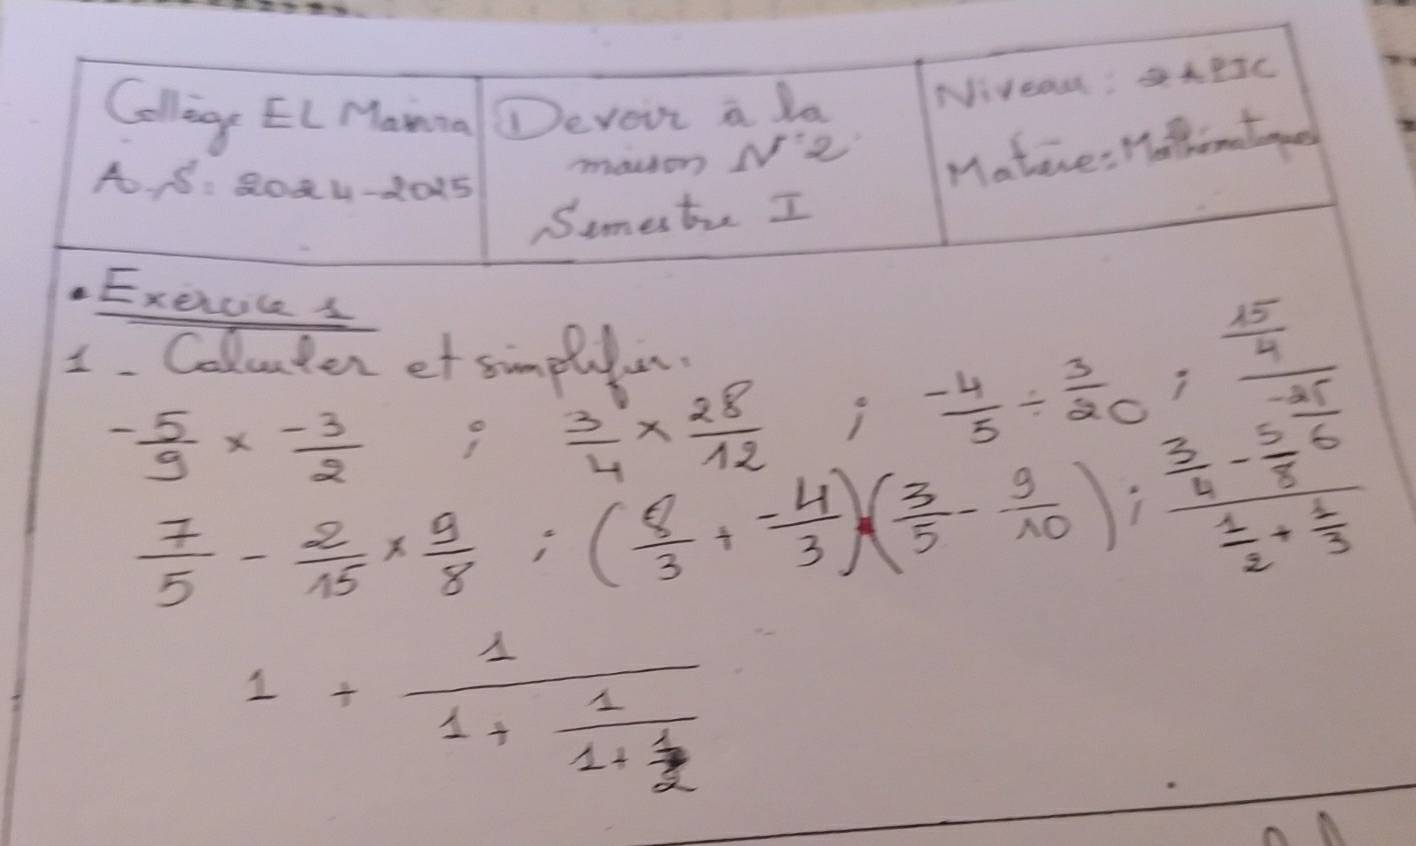 Collège EL Mania
A.S: 2024-2025
Devoir à la
maison N°2
Semestre I
Niveau: 2APIC
Matière: Mathématiques
• Exercice 1
1 - Calculer et simplifier.
-5/9 × -3/2 ; 3/4 × 28/12 ; -4/5 ÷ 3/20 ; (15/4)/(-25/6)
7/5 - 2/15 × 9/8 ; (8/3 + -4/3)•(3/5 - 9/10) ; (3/4 - 5/8)/(1/2 + 1/3)
1 + 1/(1 + 1/(1 + 1/2))